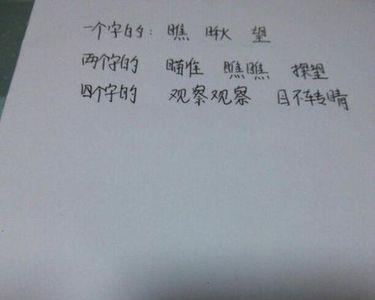 一个字的: 瞧 瞅 望
两个字的 瞄准 瞧瞧 探望
四个字的 观察观察 目不转睛